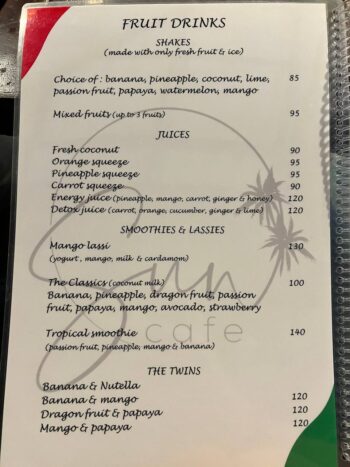 FRUIT DRINKS
SHAKES
(made with only fresh fruit & ice)
Choice of : banana, pineapple, coconut, lime, 85
passion fruit, papaya, watermelon, mango
Mixed fruits (up to 3 fruits) 95
JUICES
Fresh coconut 90
Orange squeeze 95
Pineapple squeeze 95
Carrot squeeze 90
Energy juice (pineapple, mango, carrot, ginger & honey) 120
Detox juice (carrot, orange, cucumber, ginger & lime) 120
SMOOTHIES & LASSIES
Mango lassi 130
(yogurt, mango, milk & cardamom)
The Classics (coconut milk) 100
Banana, pineapple, dragon fruit, passion
fruit, papaya, mango, avocado, strawberry
Sun
cafe
Tropical smoothie 140
(passion fruit, pineapple, mango & banana)
THE TWINS
Banana & Nutella
Banana & mango 120
Dragon fruit & papaya 120
Mango & papaya 120